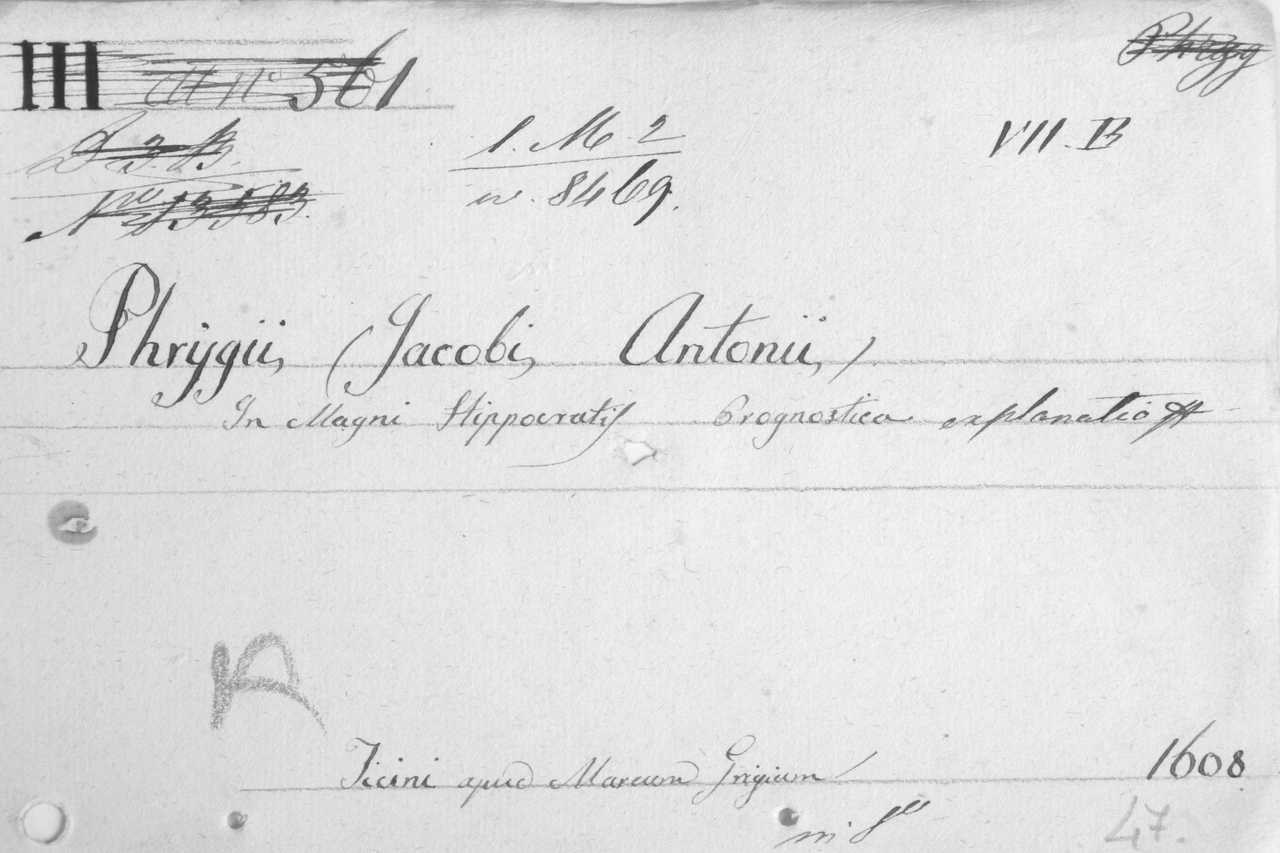 III 561 Phryg
D 3. B.
l. M 2 VII. B
No 13583. n. 8469.
Phrygii, (Jacobi, Antonii,)
In Magni Hippocratis Prognostica explanatio
Ticini apud Marcum Grigium 1608
in 8º 47.